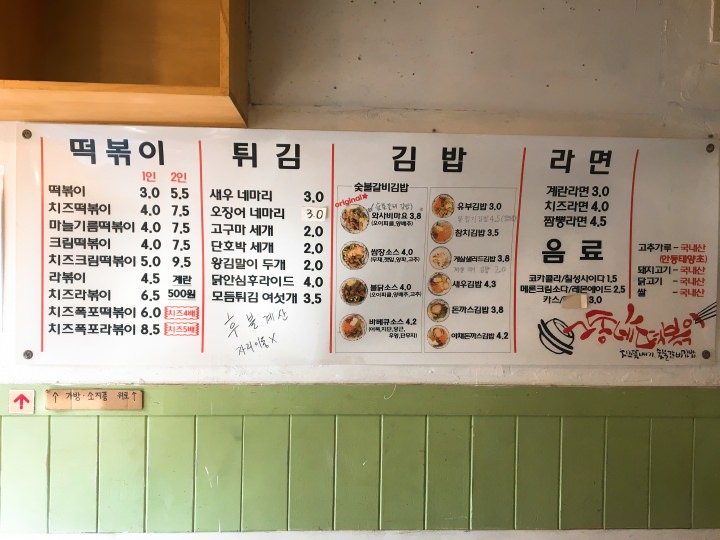 떡볶이
1인 2인
떡볶이 3.0 5.5
치즈떡볶이 4.0 7.5
마늘기름떡볶이 4.0 7.5
크림떡볶이 4.0 7.5
치즈크림떡볶이 5.0 9.5
라볶이 4.5 계란
치즈라볶이 6.5 500원
치즈폭포떡볶이 6.0 치즈4배
치즈폭포라볶이 8.5 치즈5배
튀김
새우 네마리 3.0
오징어 네마리 3.0
고구마 세개 2.0
단호박 세개 2.0
왕김말이 두개 2.0
닭안심후라이드 4.0
모듬튀김 여섯개 3.5
후불계산
자리이동X
김밥
숯불갈비김밥
original
와사비마요 3.8
(오이피클,양배추)
쌈장소스 4.0
불닭소스 4.0
(오이피클,양배추,고추)
바베큐소스 4.2
(어묵,지단,당근,
우엉,단무지)
유부김밥 3.0
참치김밥 3.5
게살샐러드김밥 3.8
새우김밥 4.3
돈까스김밥 3.8
야채돈까스김밥 4.2
라면
계란라면 3.0
치즈라면 4.0
짬뽕라면 4.5
음료
코카콜라/칠성사이다 1.5
메론크림소다/레몬에이드 2.5
카스/ 3.0
고추가루 - 국내산
(안동태양초)
돼지고기 - 국내산
닭고기 - 국내산
쌀 - 국내산
↑ 가방·소지품 위로 ↑